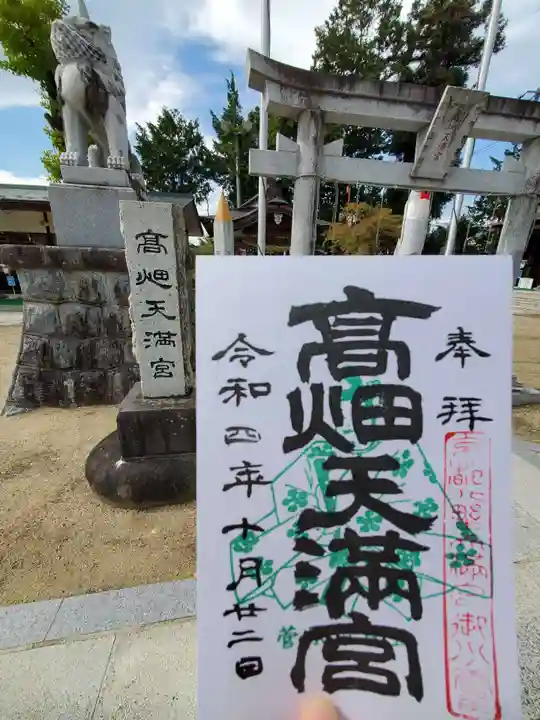 高畑天満宮
奉拝
髙畑天満宮
令和四年十月廿二日
菅